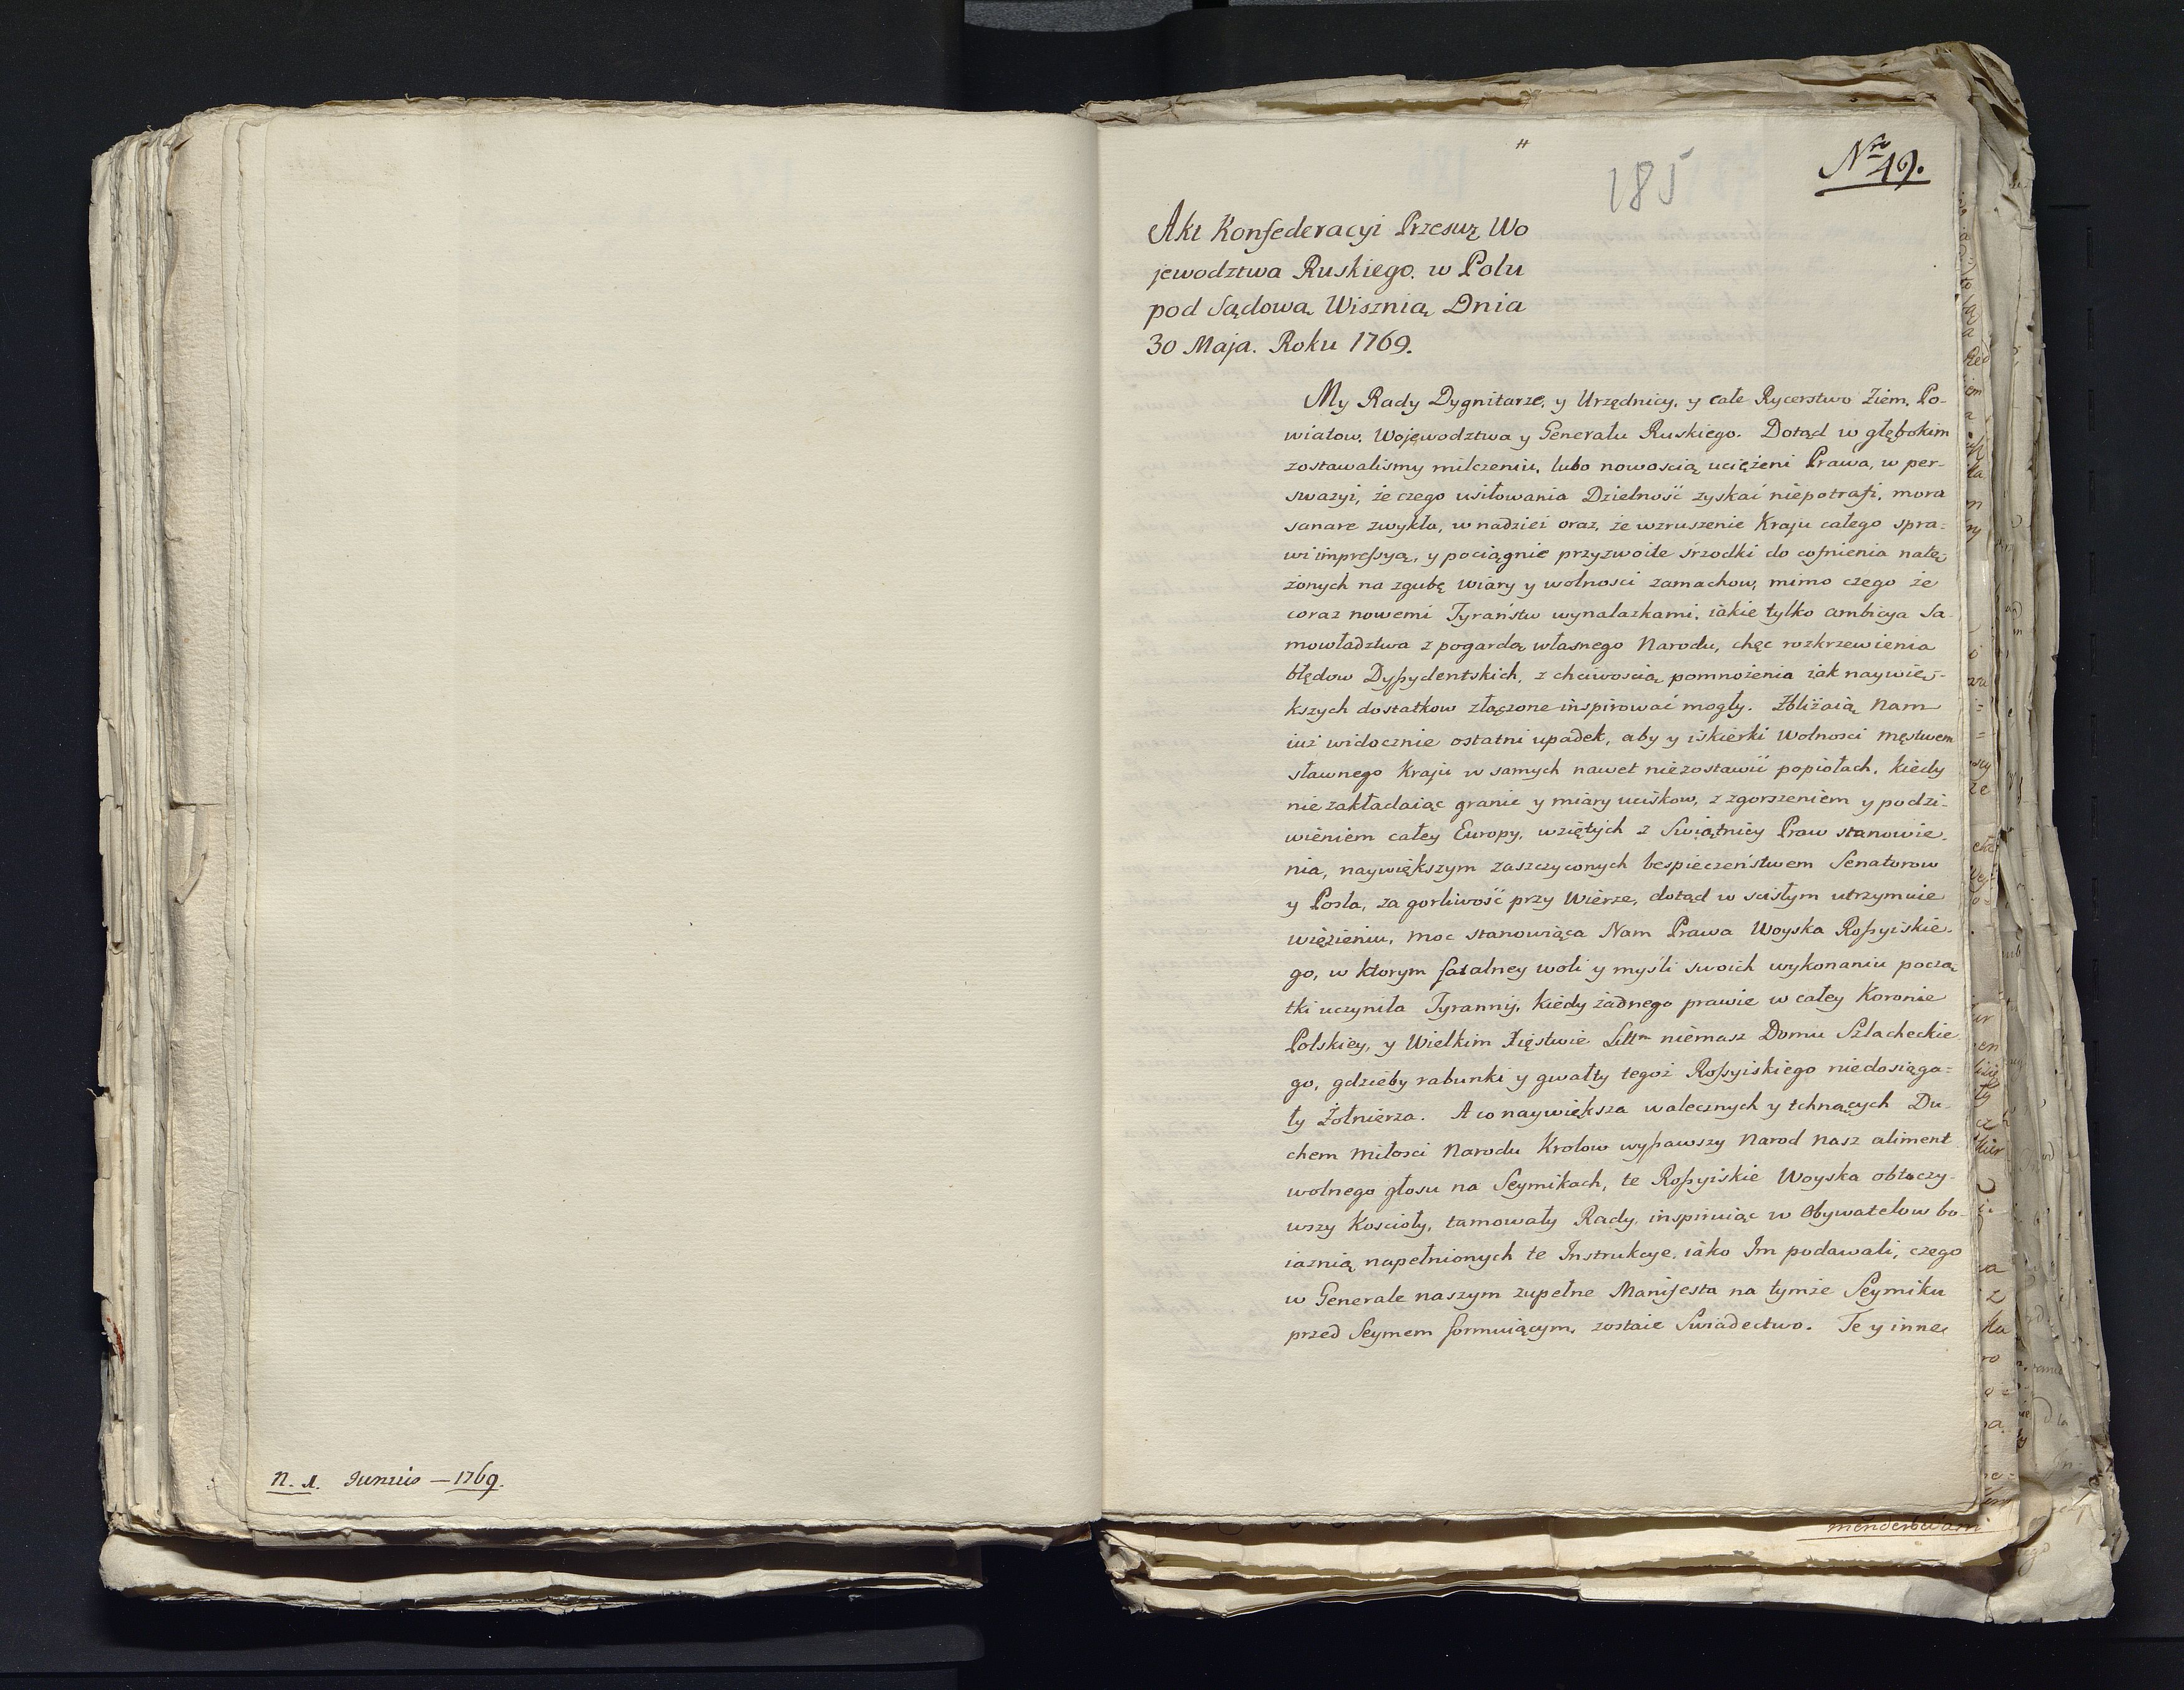 n. 1. Junuis — 1769.
185
Nro 49.
Akt Konfederacyi Przeswz Wo
jewodztwa Ruskiego. w Polu
pod Sądową Wisznią Dnia
30 Maja. Roku 1769.
My Rady Dygnitarze, y Urzędnicy, y całe Rycerstwo Ziem, Po-
wiatow, Wojewodztwa y Generału Ruskiego. Dotąd w głębokim
zostawalismy milczeniu, lubo nowoscią uciężeni Prawa, w per-
swazyi, że czego usiłowania Dzielność zyskać niepotrafi, mora
sanare zwykła, w nadziei oraz, że wzruszenie Kraju całego spra=
wi impressyą, y pociągnie przyzwoite srzodki do cofnienia natę
żonych na zgubę Wiary y wolnosci zamachow, mimo czego że
coraz nowemi Tyraństw wynalazkami, iakie tylko ambicya Sa-
mowładztwa z pogardą własnego Narodu, chęc rozkrzewienia
błędow Dyssydentskich, z chciwoscią pomnożenia iak naywię-
kszych dostatkow złączone inspirować mogły. Zbliżaią Nam
iuż widocznie ostatni upadek, aby y iskierki Wolnosci męstwem
sławnego Kraju w samych nawet niezostawić popiołach, kiedy
nie zakładaiąc granic y miary uciskow, z zgorszeniem y podzi-
wieniem całey Europy, wziętych z Swiątnicy Praw stanowie-
nia, naywiększym zaszczyconych bespieczeństwem Senatorow
y Posła, za gorliwość przy Wierze, dotąd w scisłym utrzymuie
więzieniu, moc stanowiąca Nam Prawa Woyska Rossyiskie-
go, w ktorym fatalney woli y myśli swoich wykonaniu począ
tki uczyniła Tyrannij, Kiedy żadnego prawie w całey Koronie
Polskiey, y Wielkim Xięstwie Littm niemasz Domu Szlacheckie
go, gdzieby rabunki y gwałty tegoż Rossyiskiego niedosiąga=
ły Żołnierza. A co naywiększa walecznych y tchnących Du-
chem miłosci Narodu Krolow wyssawszy Narod nasz aliment
wolnego głosu na Seymikach, te Rossyiskie Woyska obtoczy-
wszy Koscioły, tamowały Rady, inspiruiąc w Obywatelow bo-
iaznią napełnionych te Instrukcye, iako Im podawali, czego
w Generale naszym zupełne Manifesta na tymże Seymiku
przed Seymem formuiącym, zostaie Swiadectwo. Te y inne